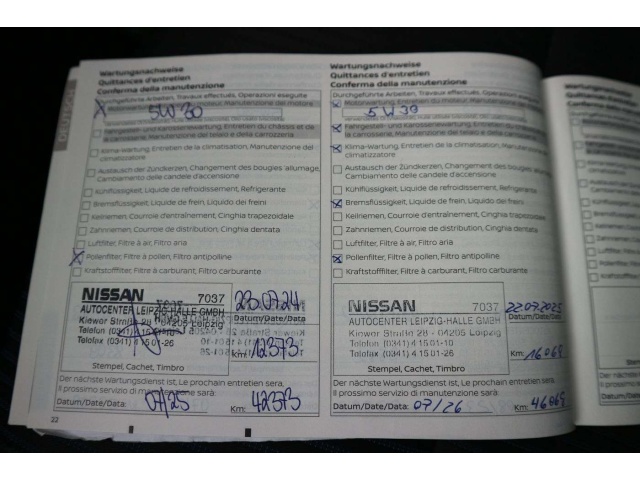 Wartungsnachweise
Quittances d'entretien
Conferma della manutenzione
Durchgeführte Arbeiten, Travaux effectués, Operazioni eseguite
5W30
Fahrgestell- und Karosseriewartung, Entretien du châssis et de
la carrosserie, Manutenzione del telaio e della carrozzeria
Klima-Wartung, Entretien de la climatisation, Manutenzione del
climatizzatore
Austausch der Zündkerzen, Changement des bougies allumage,
Cambiamento delle candele d'accensione
Kühlflüssigkeit, Liquide de refroidissement, Refrigerante
Bremsflüssigkeit, Liquide de frein, Liquido dei freini
Keilriemen, Courroie d'entraînement, Cinghia trapezoidale
Zahnriemen, Courroie de distribution, Cinghia dentata
Luftfilter, Filtre à air, Filtro aria
Pollenfilter, Filtre à pollen, Filtro antipolline
Kraftstofffilter, Filtre à carburant, Filtro carburante
NISSAN 7037
AUTOCENTER LEIPZIG-HALLE GMBH
Kiewer Straße 28 - 04205 Leipzig
Telefon (0341) 4 15 01-10
Telefax (0341) 4 15 01-26
23.07.24
Datum/Date/Data
Km: 12373
Stempel, Cachet, Timbro
Der nächste Wartungsdienst ist, Le prochain entretien sera,
Il prossimo servizio di manutenzione sarà:
Datum/Date/Data: 07/25 Km: 42373
22
Wartungsnachweise
Quittances d'entretien
Conferma della manutenzione
Durchgeführte Arbeiten, Travaux effectués, Operazioni eseguite
5W30
Fahrgestell- und Karosseriewartung, Entretien du châssis et de
la carrosserie, Manutenzione del telaio e della carrozzeria
Klima-Wartung, Entretien de la climatisation, Manutenzione del
climatizzatore
Austausch der Zündkerzen, Changement des bougies allumage,
Cambiamento delle candele d'accensione
Kühlflüssigkeit, Liquide de refroidissement, Refrigerante
Bremsflüssigkeit, Liquide de frein, Liquido dei freini
Keilriemen, Courroie d'entraînement, Cinghia trapezoidale
Zahnriemen, Courroie de distribution, Cinghia dentata
Luftfilter, Filtre à air, Filtro aria
Pollenfilter, Filtre à pollen, Filtro antipolline
Kraftstofffilter, Filtre à carburant, Filtro carburante
NISSAN 7037
AUTOCENTER LEIPZIG-HALLE GMBH
Kiewer Straße 28 - 04205 Leipzig
Telefon (0341) 4 15 01-10
Telefax (0341) 4 15 01-26
22.07.2025
Datum/Date/Data
Km: 16069
Stempel, Cachet, Timbro
Der nächste Wartungsdienst ist, Le prochain entretien sera,
Il prossimo servizio di manutenzione sarà:
Datum/Date/Data: 07/26 Km: 46069